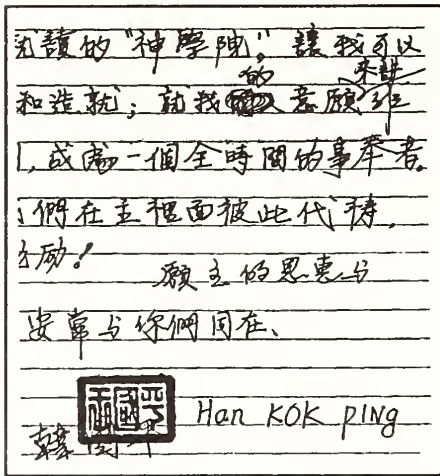 讀的“神學院”。讓我可以
和造就；就我的意願來說
，成為一個全時間的事奉者。
們在主裡面彼此代禱，
励！
願主的恩惠与
安常与你們同在、
韓国平 Han KOK PING